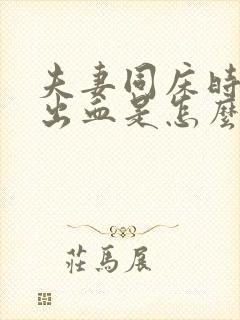 夫妻同床时
出血是怎麼
莊馬展